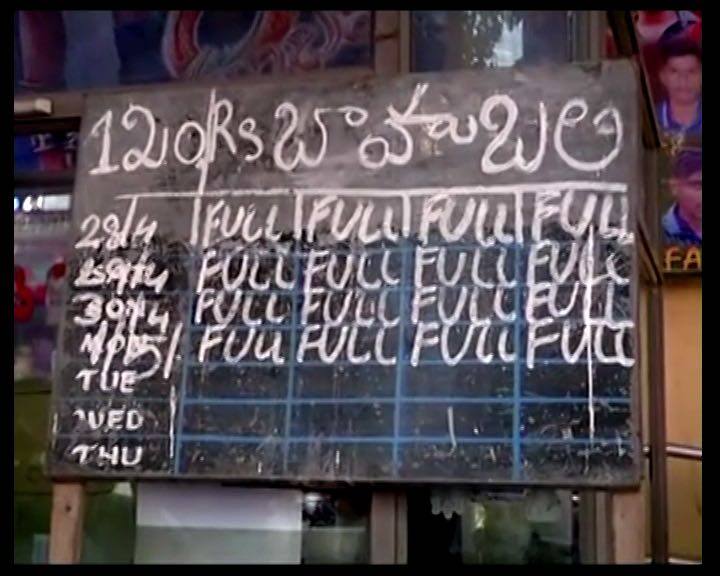 120Rs బాహుబలి
28/4 FULL FULL FULL FULL
29/4 FULL FULL FULL FULL
30/4 FULL FULL FULL FULL
1/5/ FULL FULL FULL FULL
TUE
WED
THU
FA